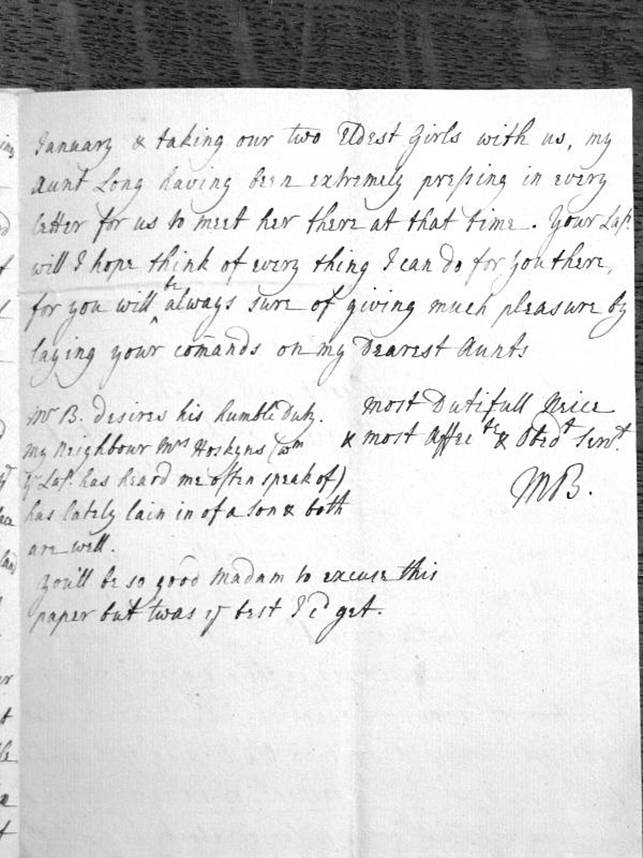 January & taking our two Eldest Girls with us, my
Aunt Long having been extremely preſsing in every
letter for us to meet her there at that time. Your Lasp:
will I hope think of every thing I can do for you there,
for you will ^be always sure of giving much pleasure by
laying your comands on my Dearest Aunts
most Dutifull Neice
& most Affec:te & Obed:t Serv:t
MB.
Mr B. desires his humble Duty.
my Neighbour Mrs Hoskyns (wm
yr Lasp: has heard me often speak of)
has lately lain in of a son & both
are well.
You'll be so good Madam to excuse this
paper but twas ye best I cd get.